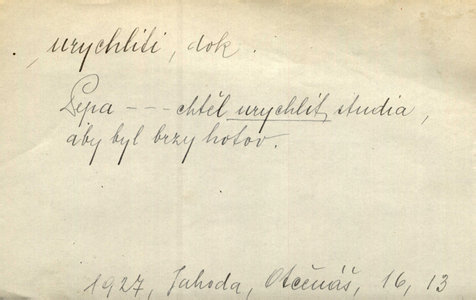 urychliti, dok.
Pepa --- chtěl urychlit studia,
aby byl brzy hotov.
1927, Jahoda, Otčenáš, 16, 13